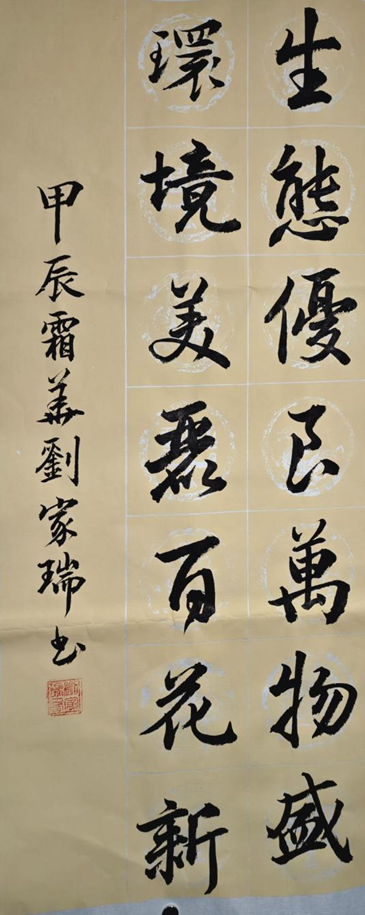 生態優良萬物盛
環境美麗百花新
甲辰霜華劉家瑞书